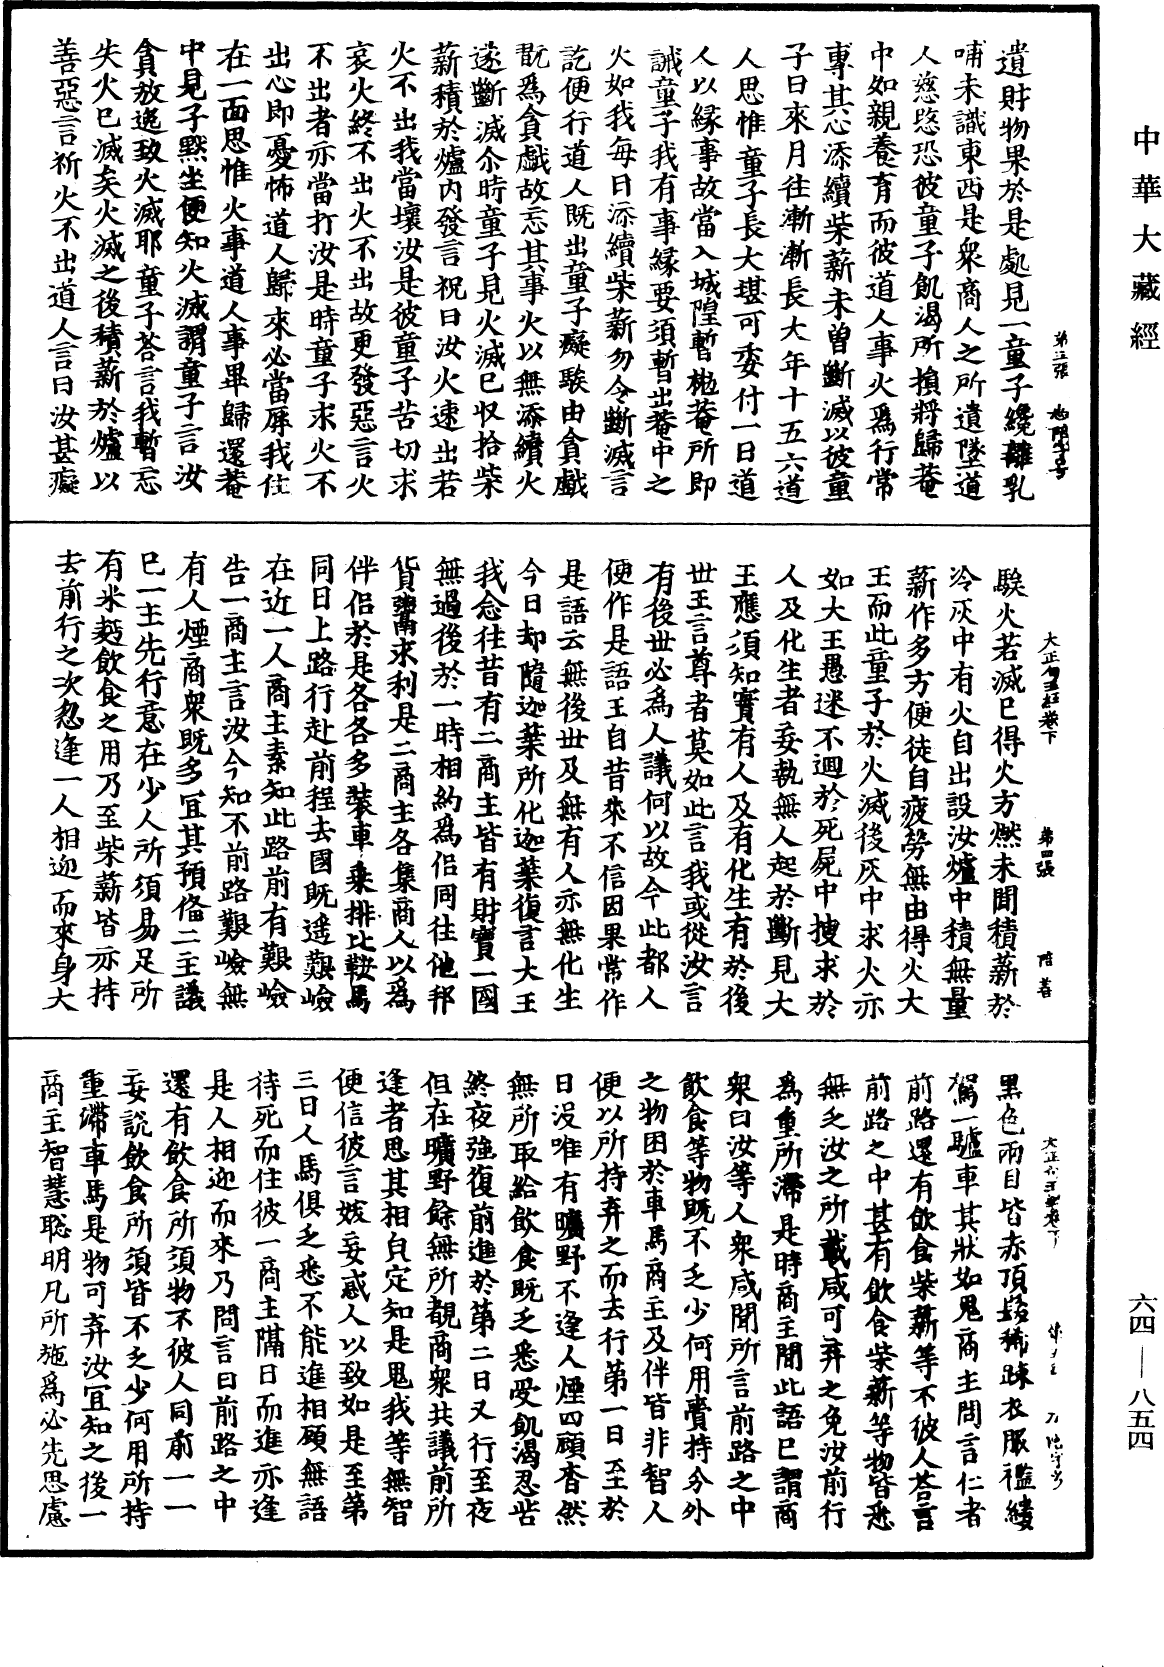 中華大藏經
遺財物果於是處見一童子纔離乳
哺未識東西是衆商人之所遺墜道
人慈愍恐彼童子飢渴所損將歸菴
中如親養育而彼道人事火爲行常
專其心添續柴薪未曽斷滅以彼童
子日來月往漸漸長大年十五六道
人思惟童子長大堪可委付一日道
人以緣事故當入城隍暫抛菴所即
誡童子我有事緣要須暫出菴中之
火如我每日添續柴薪勿令斷滅言
訖便行道人既出童子癡騃由貪戲
翫爲貪戲故忘其事火以無添續火
遂斷滅尒時童子見火滅已收拾柴
薪積於爐內發言祝曰汝火速出若
火不出我當壞汝是彼童子苦切求
哀火終不出火不出故更發惡言火
不出者亦當打汝是時童子求火不
出心即憂怖道人歸來必當辱我住
在一面思惟火事道人事畢歸還菴
中見子默坐便知火滅謂童子言汝
貪放逸致火滅耶童子荅言我暫忘
失火已滅矣火滅之後積薪於爐以
善惡言祈火不出道人言曰汝甚癡
騃火若滅已得火方燃未聞積薪於
冷灰中有火自出設汝爐中積無量
薪作多方便徒自疲勞無由得火大
王而此童子於火滅後灰中求火亦
如大王愚迷不迴於死屍中搜求於
人及化生者妄執無人起於斷見大
王應須知實有人及有化生有於後
世王言尊者莫如此言我或從汝言
有後世必爲人議何以故今此都人
便作是語王自昔來不信因果常作
是語云無後世及無有人亦無化生
今日却隨迦葉所化迦葉復言大王
我念往昔有二商主皆有財寶一國
無過後於一時相約爲侶同往他邦
貨鬻求利是二商主各集商人以爲
伴侶於是各各多裝車乘排比鞍馬
同日上路行赴前程去國既遥艱嶮
在近一人商主素知此路前有艱嶮
告一商主言汝今知不前路艱嶮無
有人煙商衆既多宜其預俻二主議
已一主先行意在少人所須易足所
有米麫飲食之用乃至柴薪皆亦持
去前行之次忽逢一人相迎而來身大
黑色兩目皆赤頂髮稀踈衣服襤縷
駕一驢車其狀如鬼商主問言仁者
前路還有飲食柴薪等不彼人荅言
前路之中甚有飲食柴薪等物皆悉
無乏汝之所載咸可弃之免汝前行
爲重所滯是時商主聞此語已謂商
衆曰汝等人衆咸聞所言前路之中
飲食等物既不乏少何用賷持分外
之物困於車馬商主及伴皆非智人
便以所持弃之而去行第一日至於
日没唯有曠野不逢人煙四顧杳然
無所取給飲食既乏悉受飢渴忍苦
終夜強復前進於第二日又行至夜
但在曠野餘無所覩商衆共議前所
逢者思其相皃定知是鬼我等無智
便信彼言妖妄惑人以致如是至第
三日人馬俱乏悉不能進相顧無語
待死而住彼一商主隔日而進亦逢
是人相迎而來乃問言曰前路之中
還有飲食所須物不彼人同前一一
妄説飲食所須皆不乏少何用所持
重滯車馬是物可弃汝宜知之後一
商主智慧聡明凡所施爲必先思慮
第三張
第四張
六四—八五四